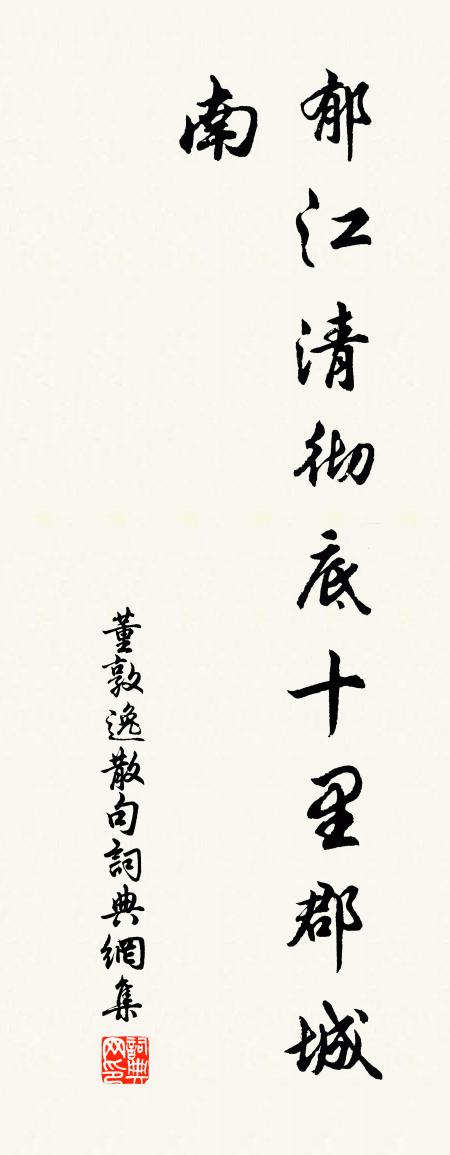 郁江清彻底十里郡城
南
董敦逸散句詞典網集
詞典网印